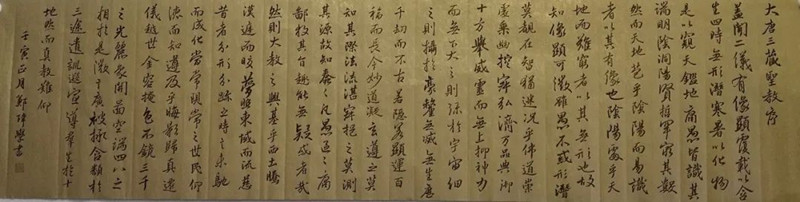 大唐三藏聖教序
蓋聞二儀有像顯覆載以含
生四時無形潛寒暑以化物
是以窺天鑑地庸愚皆識其
端明陰洞陽賢哲罕窮其數
然而天地苞乎陰陽而易識
者以其有像也陰陽處乎天
地而難窮者以其無形也故
知像顯可徵雖愚不惑形潛
莫覩在智猶迷況乎佛道崇
虛乘幽控寂弘濟萬品典御
十方舉威靈而無上抑神力
而無下大之則彌於宇宙細
之則攝於豪釐無滅無生歷
千劫而不古若隱若顯運百
福而長今妙道凝玄遵之莫
知其際法流湛寂挹之莫測
其源故知蠢々凡愚區々庸
鄙投其旨趣能無疑惑者哉
然則大教之興基乎西土騰
漢庭而皎夢照東域而流慈
昔者分形分跡之時言未馳
而成化當常現常之世民仰
德而知遵及乎晦影歸真遷
儀越世金容掩色不鏡三千
之光麗象開圖空端四八之
相於是微言廣被拯含類於
三途遺訓遐宣導群生於十
地然而真教難仰
壬寅正月鄭 書